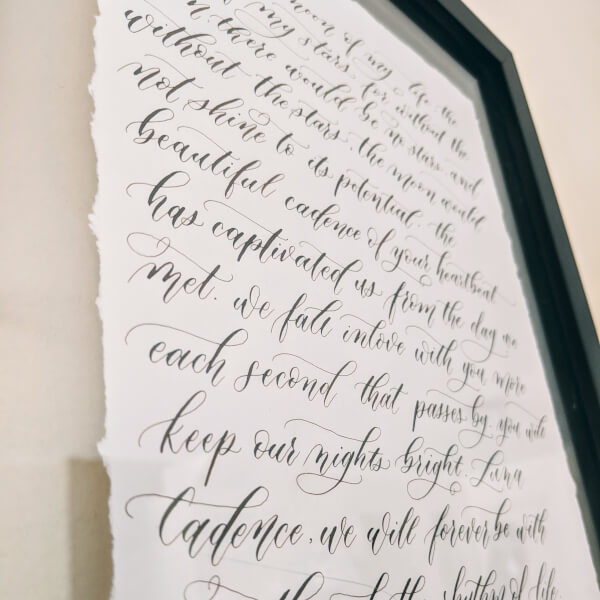 moon of my life the
my stars, for without the
n, there would be no stars and
without the stars, the moon would
not shine to its potential. the
beautiful cadence of your heartbeat
has captivated us from the day we
met. we fall inlove with you more
each second that passes by. you will
keep our nights bright. Luna
Cadence, we will forever be with
rhythm of life.